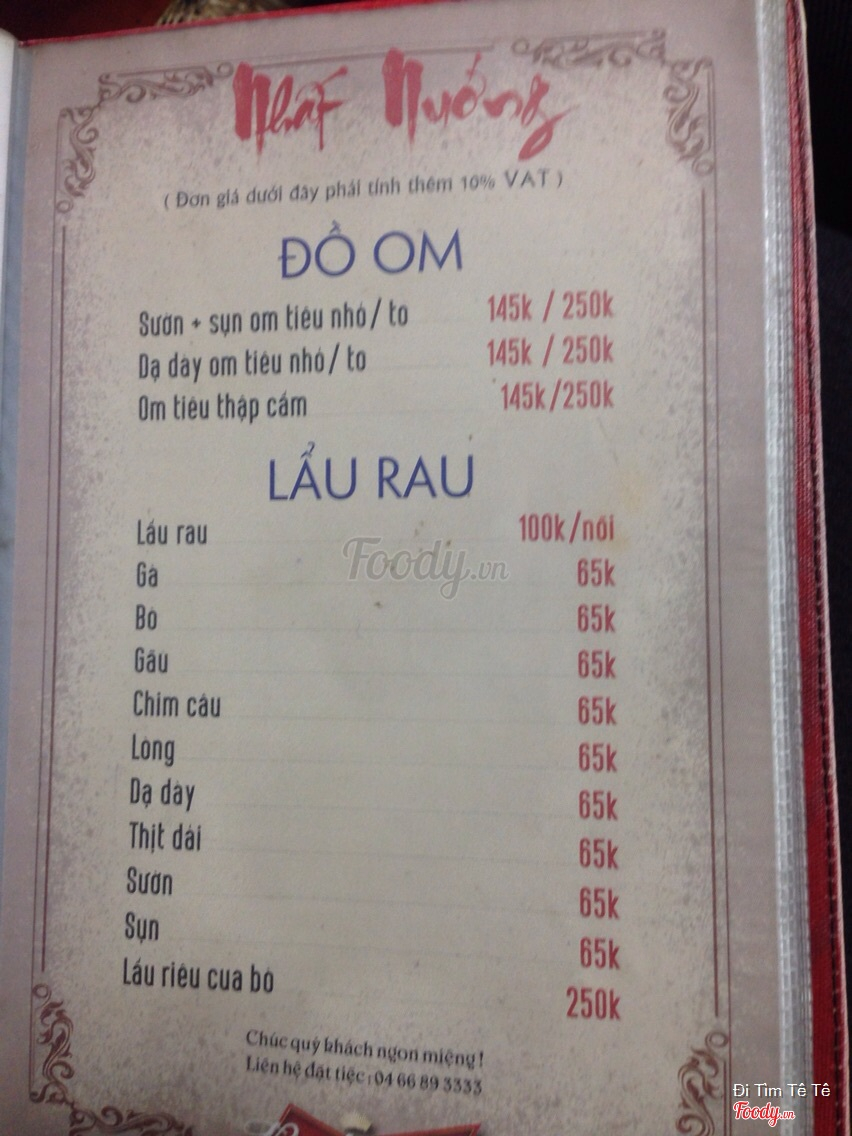 Nhất Nướng
( Đơn giá dưới đây phải tính thêm 10% VAT )
ĐỒ OM
Sườn + sụn om tiêu nhỏ / to 145k / 250k
Dạ dày om tiêu nhỏ / to 145k / 250k
Om tiêu thập cẩm 145k/250k
LẨU RAU
Lẩu rau 100k/nồi
Gà 65k
Bò 65k
Gầu 65k
Chim câu 65k
Lòng 65k
Dạ dày 65k
Thịt dải 65k
Sườn 65k
Sụn 65k
Lẩu riêu cua bò 250k
Foody.vn
Chúc quý khách ngon miệng !
Liên hệ đặt tiệc : 04 66 89 3333
Đi Tìm Tê Tê
Foody.vn